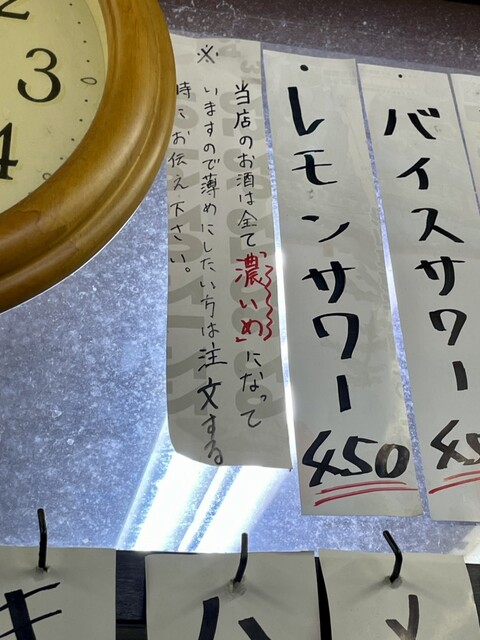 バイスサワー
レモンサワー
450
※
当店のお酒は全て「濃いめ」になって
いますので薄めにしたい方は注文する
時にお伝え下さい。
2
3
4
キ
ハ
メ